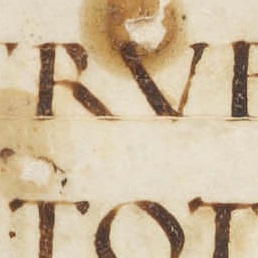 RVE
TOT